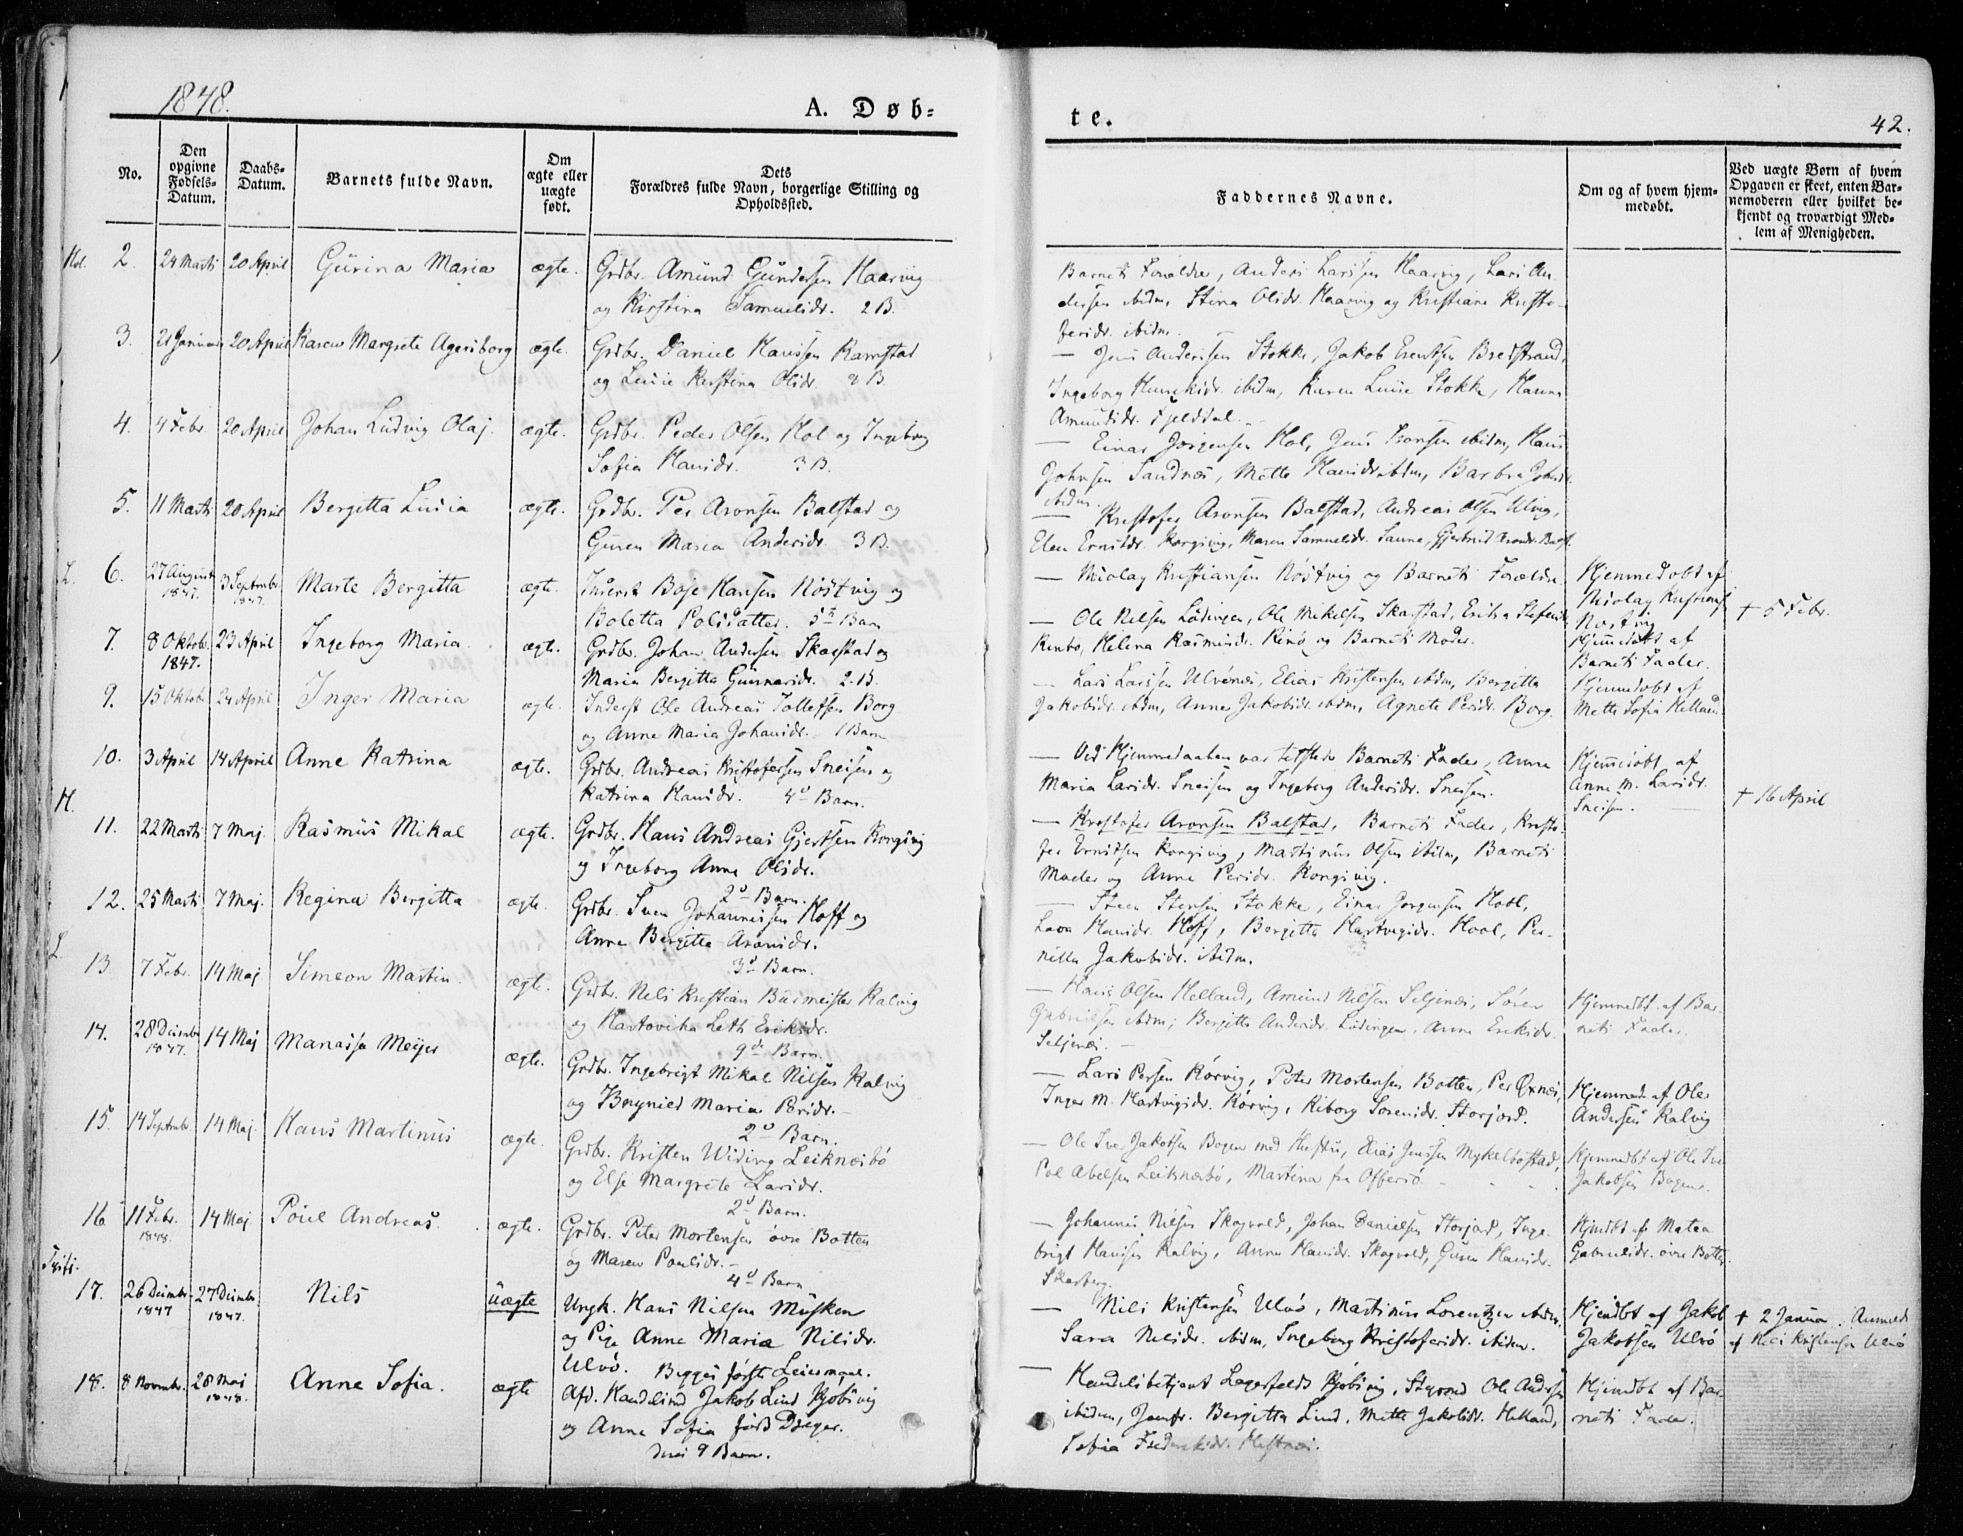 1848.
A. Døb=
te.
42.
No.
Den opgivne Fødsels-Datum.
Daabs-Datum.
Barnets fulde Navn.
Om ægte eller uægte født.
Dets Forældres fulde Navn, borgerlige Stilling og Opholdssted.
Faddernes Navne.
Om og af hvem hjem-medøbt.
Ved uægte Børn af hvem Opgaven er skeet, enten Bar-nemoderen eller hvilket be-kjendt og troværdigt Med-lem af Menigheden.
Hol. 2. 24 Marti 20 April Gurina Maria ægte. Grdbr. Amund Gundersen Haarvig
og Kirstina Samuelsdr. 2 B.
Barnets Forældre, Anders Larssen Haarvig, Lars An-
dersen ibidm, Stina Olsdr. Haarvig og Kristiane Kristo-
fersdr. ibidm.
3. 21 Januar 20 April Karen Margrete Agersborg ægte. Grdbr. Daniel Hanssen Ramstad
og Lucie Kirstina Olsdr. 8 B.
— Jens Anderssen Stokke, Jakob Erentsen Bredstrand,
Ingeborg Henriksdr. ibidm, Karen Lucie Stokke, Hanna
Amundsdr. Fjeldtal.
4. 4 Febr. 20 April Johan Ludvig Olaj. ægte. Grdbr. Peder Olsen Hol og Ingeborg
Sofia Hansdr. 3 B.
— Einar Jørgensen Hol, Jens ibidm, Hans
Johnsen Sandnes, Mette Hansdr. ibidm, Barbra Johnsdr.
ibidm.
5. 11 Marti 20 April Bergitta Lucia ægte. Grdbr. Per Aronsen Balstad og
Guren Maria Andersdr. 3 B.
— Kristofer Aronsen Balstad, Andreas Olsen Ulvig,
Elen Ernstdr. Kongsvig, Maren Samuelsdr. Sanne, Gjertrud Aronsdr. Balst.
L. 6. 27 August 1847. 3 Septembr 1847. Marte Bergitta ægte. Inderst Boje Hansen Nöstvig og
Boletta Polsdatter. 5te Barn
— Nicolay Kristiansen Nöstvig og Barnets Forældre
Hjemmedøbt af
Nicolay Kristians.
Nöstvig
+ 5 Febr.
7. 8 Oktobr 1847. 23 April Ingeborg Maria. ægte. Grdbr. Johan Andersen Skarstad og
Maria Bergitta Gunnarsdr. 2. B.
— Ole Nilsen Lödingen, Ole Mikelsen Skarstad, Erika Stefensdr.
Rinbø, Helena Rasmusdr. Rinø og Barnets Moder.
Hjemmedøbt af
Barnets Fader.
9. 15 Oktobr 24 April Inger Maria ægte. Inderst Ole Andreas Tollefsen Borg
og Anne Maria Johansdr. 1 Barn
— Lars Larssen Ulvönæs, Elias Kristensen ibidm, Bergitta
Jakobsdr. ibdm, Anne Jakobsdr. ibdm, Agnete Persdr. Borg.
Hjemmedøbt af
Mette Sofia Helland.
10. 3 April 14 April Anne Katrina ægte. Grdbr. Andreas Kristofersen Sneisen og
Katrina Hansdr. 4de Barn.
— Ved Hjemmedaaben var tilstede Barnets Fader, Anne
Maria Larsdr. Sneisen og Ingeborg Andersdr. Sneisen.
Hjemmedøbt af
Anne M. Larsdr.
Sneisen.
+ 16 April
H. 11. 22 Marti 7 Maj. Rasmus Mikal ægte. Grdbr. Hans Andreas Gjertsen Kongsvig
og Ingeborg Anne Olsdr.
2d Barn.
— Kristofer Aronsen Balstad, Barnets Fader, Kristo-
fer Ernstsen Kongsvig, Martinus Olsen ibidm, Barnets
Moder og Anne Persdr. Kongsvig.
12. 25 Marti 7 Maj. Regina Bergitta ægte. Grdbr. Sven Johannessen Hoff og
Anne Bergitta Aronsdr.
3d Barn.
— Steen Stensen Stokke, Einar Jørgensen Hool,
Lava Hansdr. Hoff, Bergitta Hartvigsdr. Hool, Per-
nilla Jakobsdr. ibidm.
L. 13. 7 Febr. 14 Maj Simeon Martin. ægte. Grdbr. Nels Kristian Burmeister Kalvig
og Hartovika Leth Eriksdr.
9de Barn.
— Hans Olsen Helland, Amund Nilsen Seljenæs, Sören
Gabrielsen ibdm; Bergitta Andersdr. Lödingen, Anne Eriksdr.
Seljenæs. —
Hjemmedbt. af Bar-
nets Fader.
14. 28 Decembr 1847. 14 Maj Manassa Meijer ægte. Grdbr. Ingebrigt Mikal Nilsen Kalvig
og Brynild Maria Persdr. —
2d Barn.
— Lars Persen Rörvig, Peter Mortensen Botten, Per Oxnæs,
Inger M. Hartvigsdr. Rörvig, Kiborg Sorensdr. Storjord.
Hjemmed. af Ole
Andersen Kalvig
15. 14 Septembr. 14 Maj. Hans Martinus ægte. Grdbr. Kristen Widing Leiknesbö
og Else Margrete Larsdr.
2d Barn.
— Ole Iver Jakobsen Bogen med Hustru, Elias Jenssen Myklebostad,
Pol Abelsen Leiknesbö, Martina fra Offersö.
Hjemmedbt af Ole Iver
Jakobsen Bogen.
16 11 Febr. 1848. 14 Maj. Poul Andreas. ægte. Grdbr. Peter Mortensen övre Botten
og Maren Poulsdr. —
4d Barn
— Johannes Nilsen Skogvold, Johan Danielsen Storjord, Inge-
brigt Hansen Kalvig, Anne Hansdr. Skogvold, Guren Hansdr.
Skarberg.
Hjmdbt af Matea
Gabrielsdr. övre Botten.
17. 26 Decembr. 1847 27 Decembr. 1847. Nils uægte Ungk. Hans Nilsen Musken
og Pige Anne Maria Nilsdr.
Ulvö. Begges første Leiermaal.
— Nils Kristensen Ulvö, Martinus Lorentzen ibdm.
Sara Nelsdr. ibdm, Ingeborg Kristofersdr. ibidem.
Hjmdbt af Jakob
Jakobsen Ulvö
+ 2 Januar. Anmeldt
af Nils Kristensen Ulvö
18. 8 Novembr. 28 Maj 1848. Anne Sofia. ægte Afd. Handelsmd Jakob Lind Kjöbsvig
og Anne Sofia född Dreyer.
Deres 9 Barn.
— Handelsbetjent Lagerfeldt Kjöbsvig, Styrmd Ole Andersen
ibidem, Jomfr. Bergitta Lind, Mette Jakobsdr. Helland,
Sofia Frederiksdr. Hestnæs.
Hjmdbt af Bar-
nets Fader.